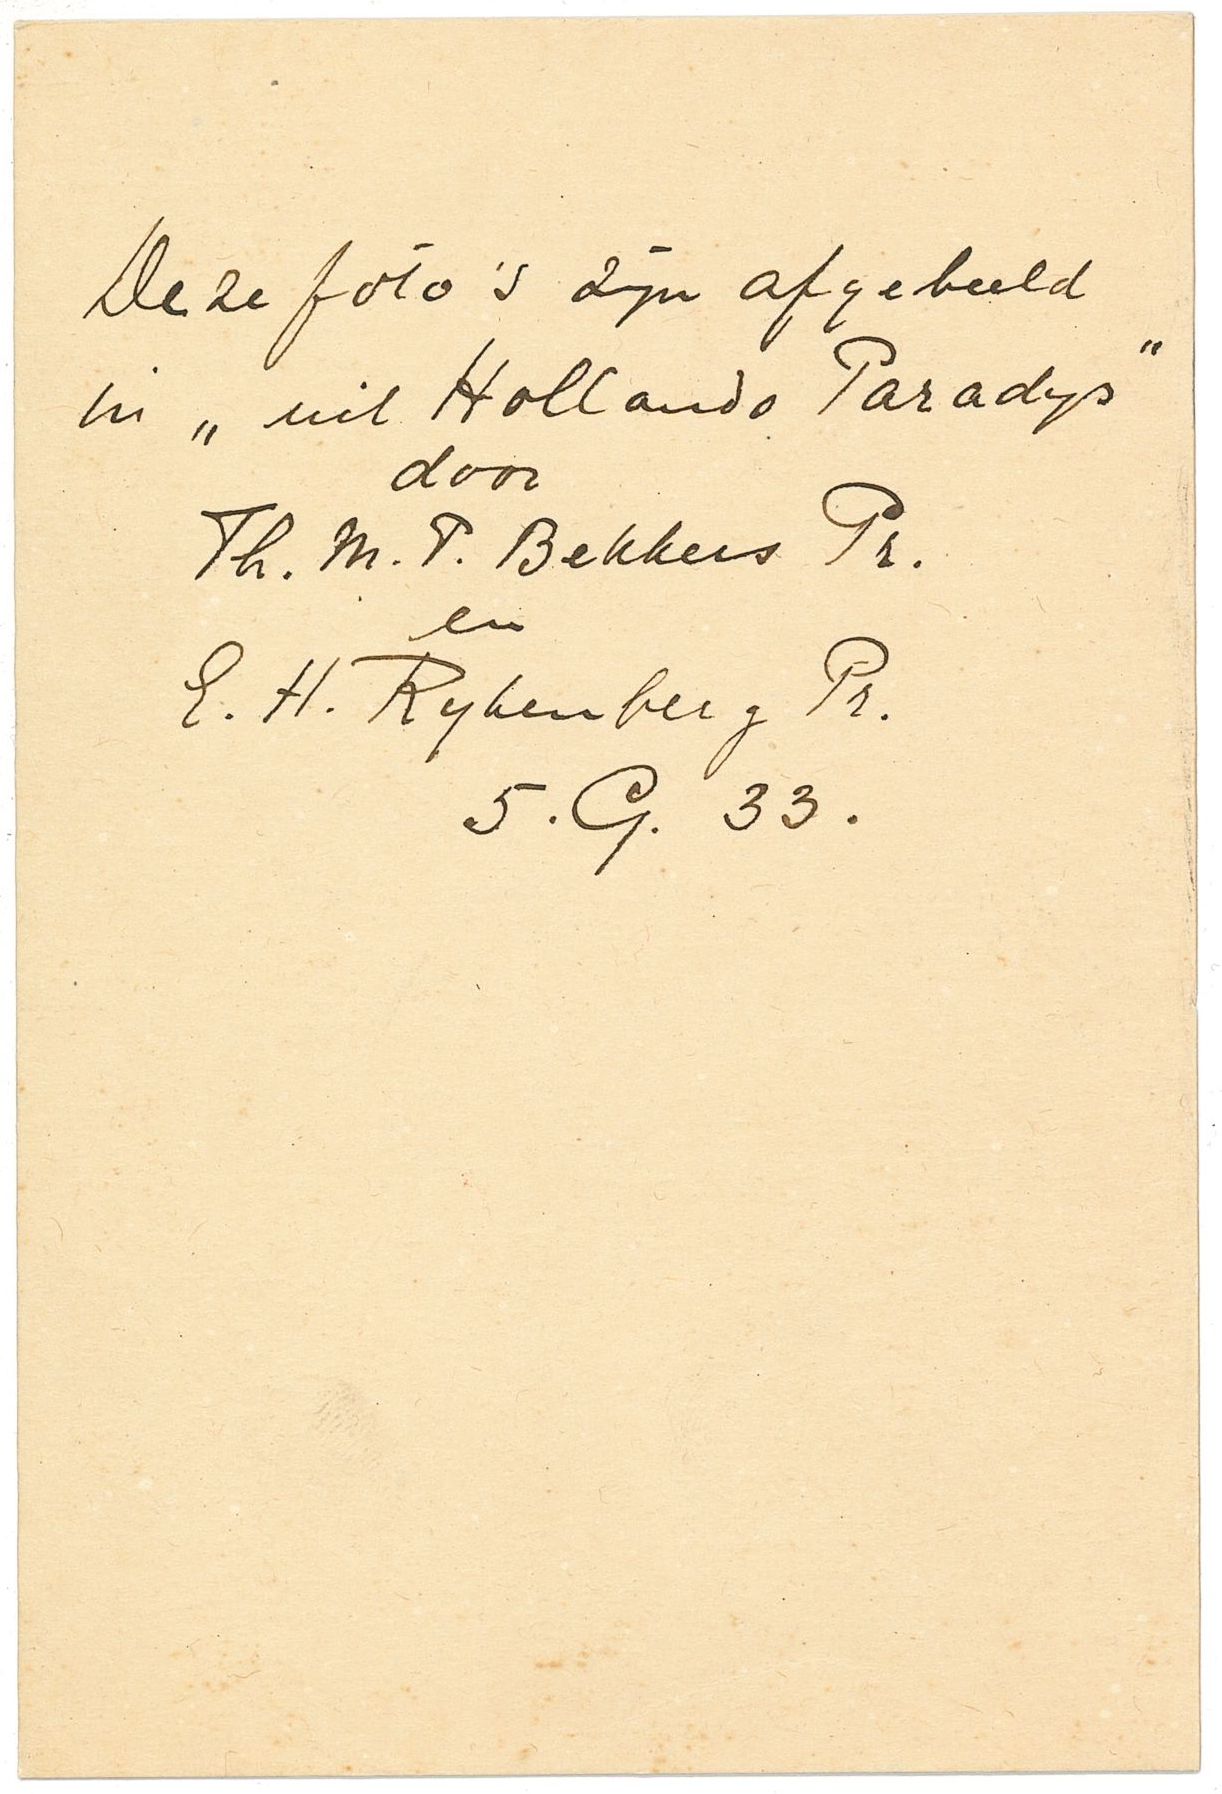 Deze foto's zijn afgebeeld
in „uit Hollands Paradys"
door
Th. M. P. Bekkers Pr.
en
E. H. Rykenberg Pr.
5. G. 33.